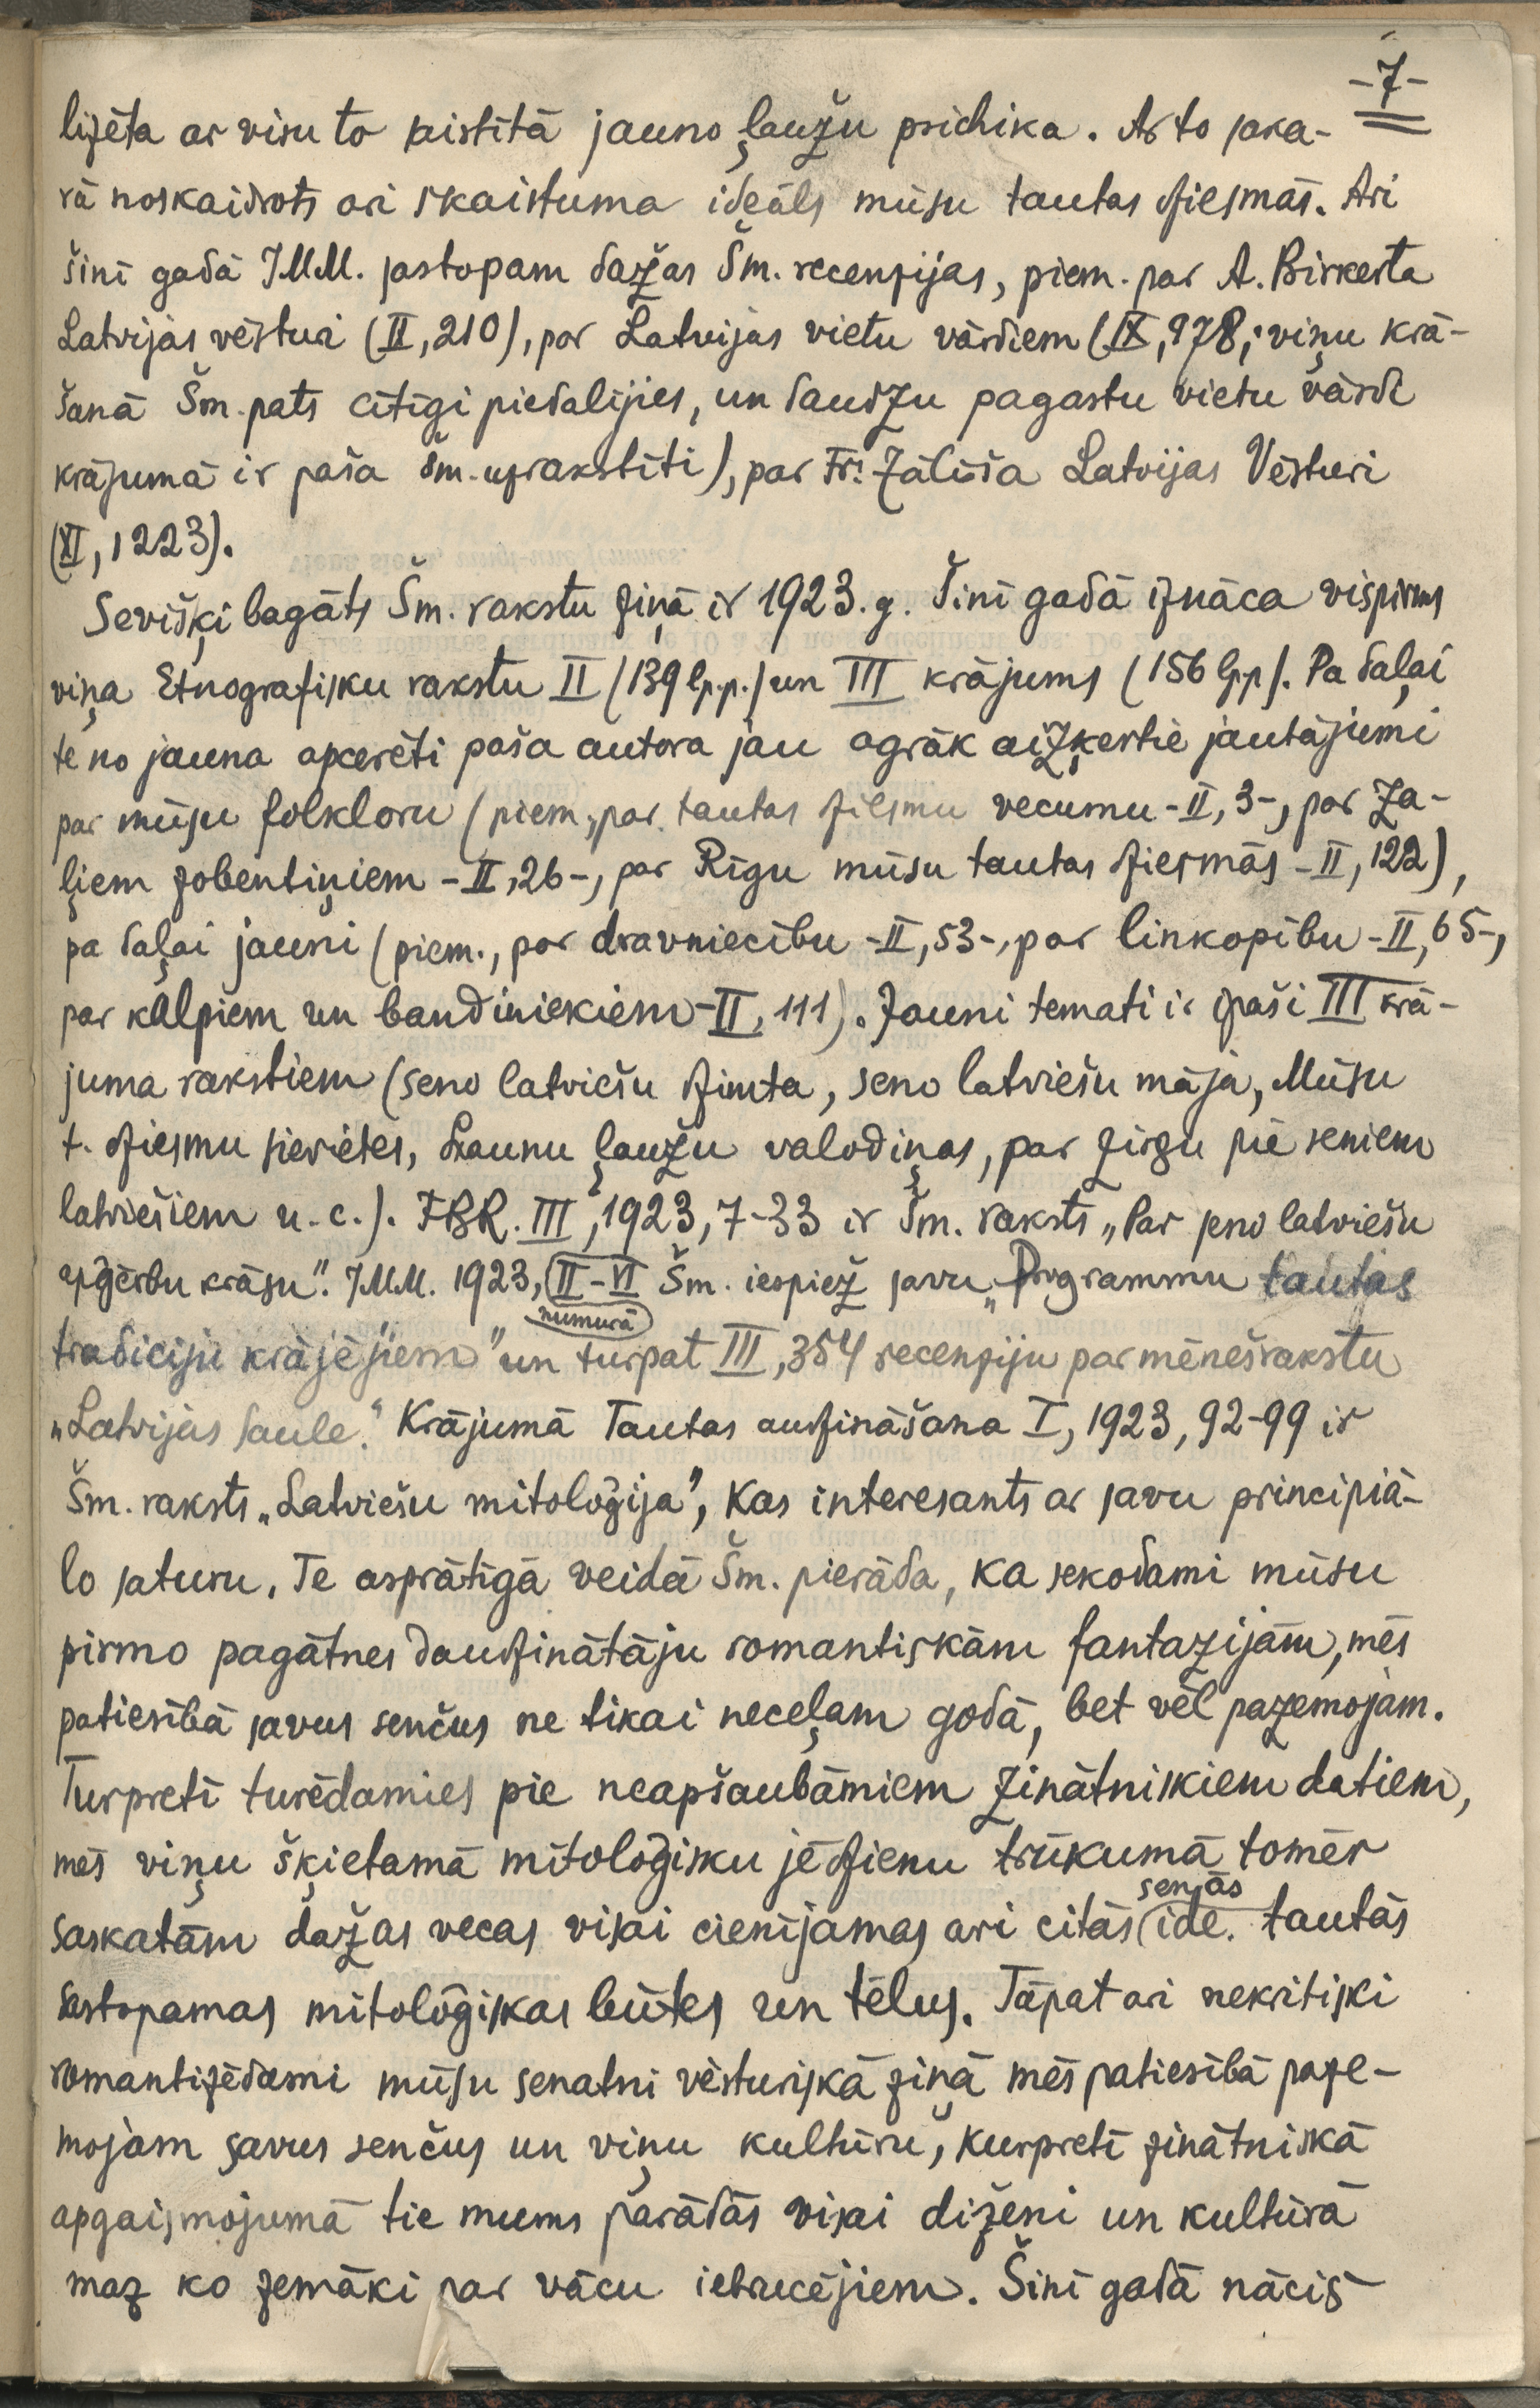 -7-
lizēta ar visu to saistītā jauno ļaužu psichika. Ar to saka-
rā noskaidrots ari skaistuma ideāls mūsu tautas dziesmās. Ari
šinī gadā IMM. sastopam dažas Šm. recenzijas, piem. par A. Birkerta
Latvijas vēsturi (II, 210), par Latvijas vietu vārdiem (IX, 978; viņu krā-
šanā Šm. pats cītīgi piedalījies, un daudzu pagastu vietu vārdi
krājumā ir paša Šm. uzrakstīti), par Fr. Zālīša Latvijas Vēsturi
(XI, 1223).
Seviški bagāts Šm. rakstu ziņā ir 1923. g. Šinī gadā iznāca vispirms
viņa Etnografisku rakstu II (139 lp.p.) un III krājums (156 lpp). Pa daļai
te no jauna apcerēti paša autora jau agrāk aizķertie jautājumi
par mūsu folkloru (piem., par tautas dziesmu vecumu -II, 3-, par za-
ļiem zobentiņiem -II, 26-, par Rīgu mūsu tautas dziesmās -II, 122),
pa daļai jauni (piem., par dravniecību -II, 53-, par linkopību -II, 65-,
par kalpiem un bandiniekiem -II, 111). Jauni temati ir īpaši III krā-
juma rakstiem (seno latviešu dzimta, seno latviešu māja, Mūsu
t. dziesmu sievietes, Ļaunu ļaužu valodiņas, par zirgu pie seniem
latviešiem u.c.). FBR. III, 1923, 7-33 ir Šm. raksts „Par seno latviešu
apģērbu krāsu". IMM. 1923, II-VI Šm. iespiež savu „Programmu tautas
numurā
tradiciju krājējiem" un turpat III, 354 recenziju par mēnešrakstu
„Latvijas Saule." Krājumā Tautas audzināšana I, 1923, 92-99 ir
Šm. raksts „Latviešu mitoloģija", kas interesants ar savu principiā-
lo saturu. Te asprātīgā veidā Šm. pierāda, ka sekodami mūsu
pirmo pagātnes daudzinātāju romantiskām fantazijām, mēs
patiesībā savus senčus ne tikai neceļam godā, bet vēl pazemojam.
Turpretī turēdamies pie neapšaubāmiem zinātniskiem datiem,
mēs viņu šķietamā mitoloģisku jēdzienu trūkumā tomēr
senjās
saskatām dažas vecas visai cienījamas ari citās ide. tautās
sastopamas mitoloģiskas būtes un tēlus. Tāpat ari nekritiski
romantizēdami mūsu senatni vēsturiskā ziņā mēs patiesībā paze-
mojam savus senčus un viņu kultūru, kurpretī zinātniskā
apgaismojumā tie mums parādās visai diženi un kultūrā
maz ko zemāki par vācu iebrucējiem. Šinī gadā nācis